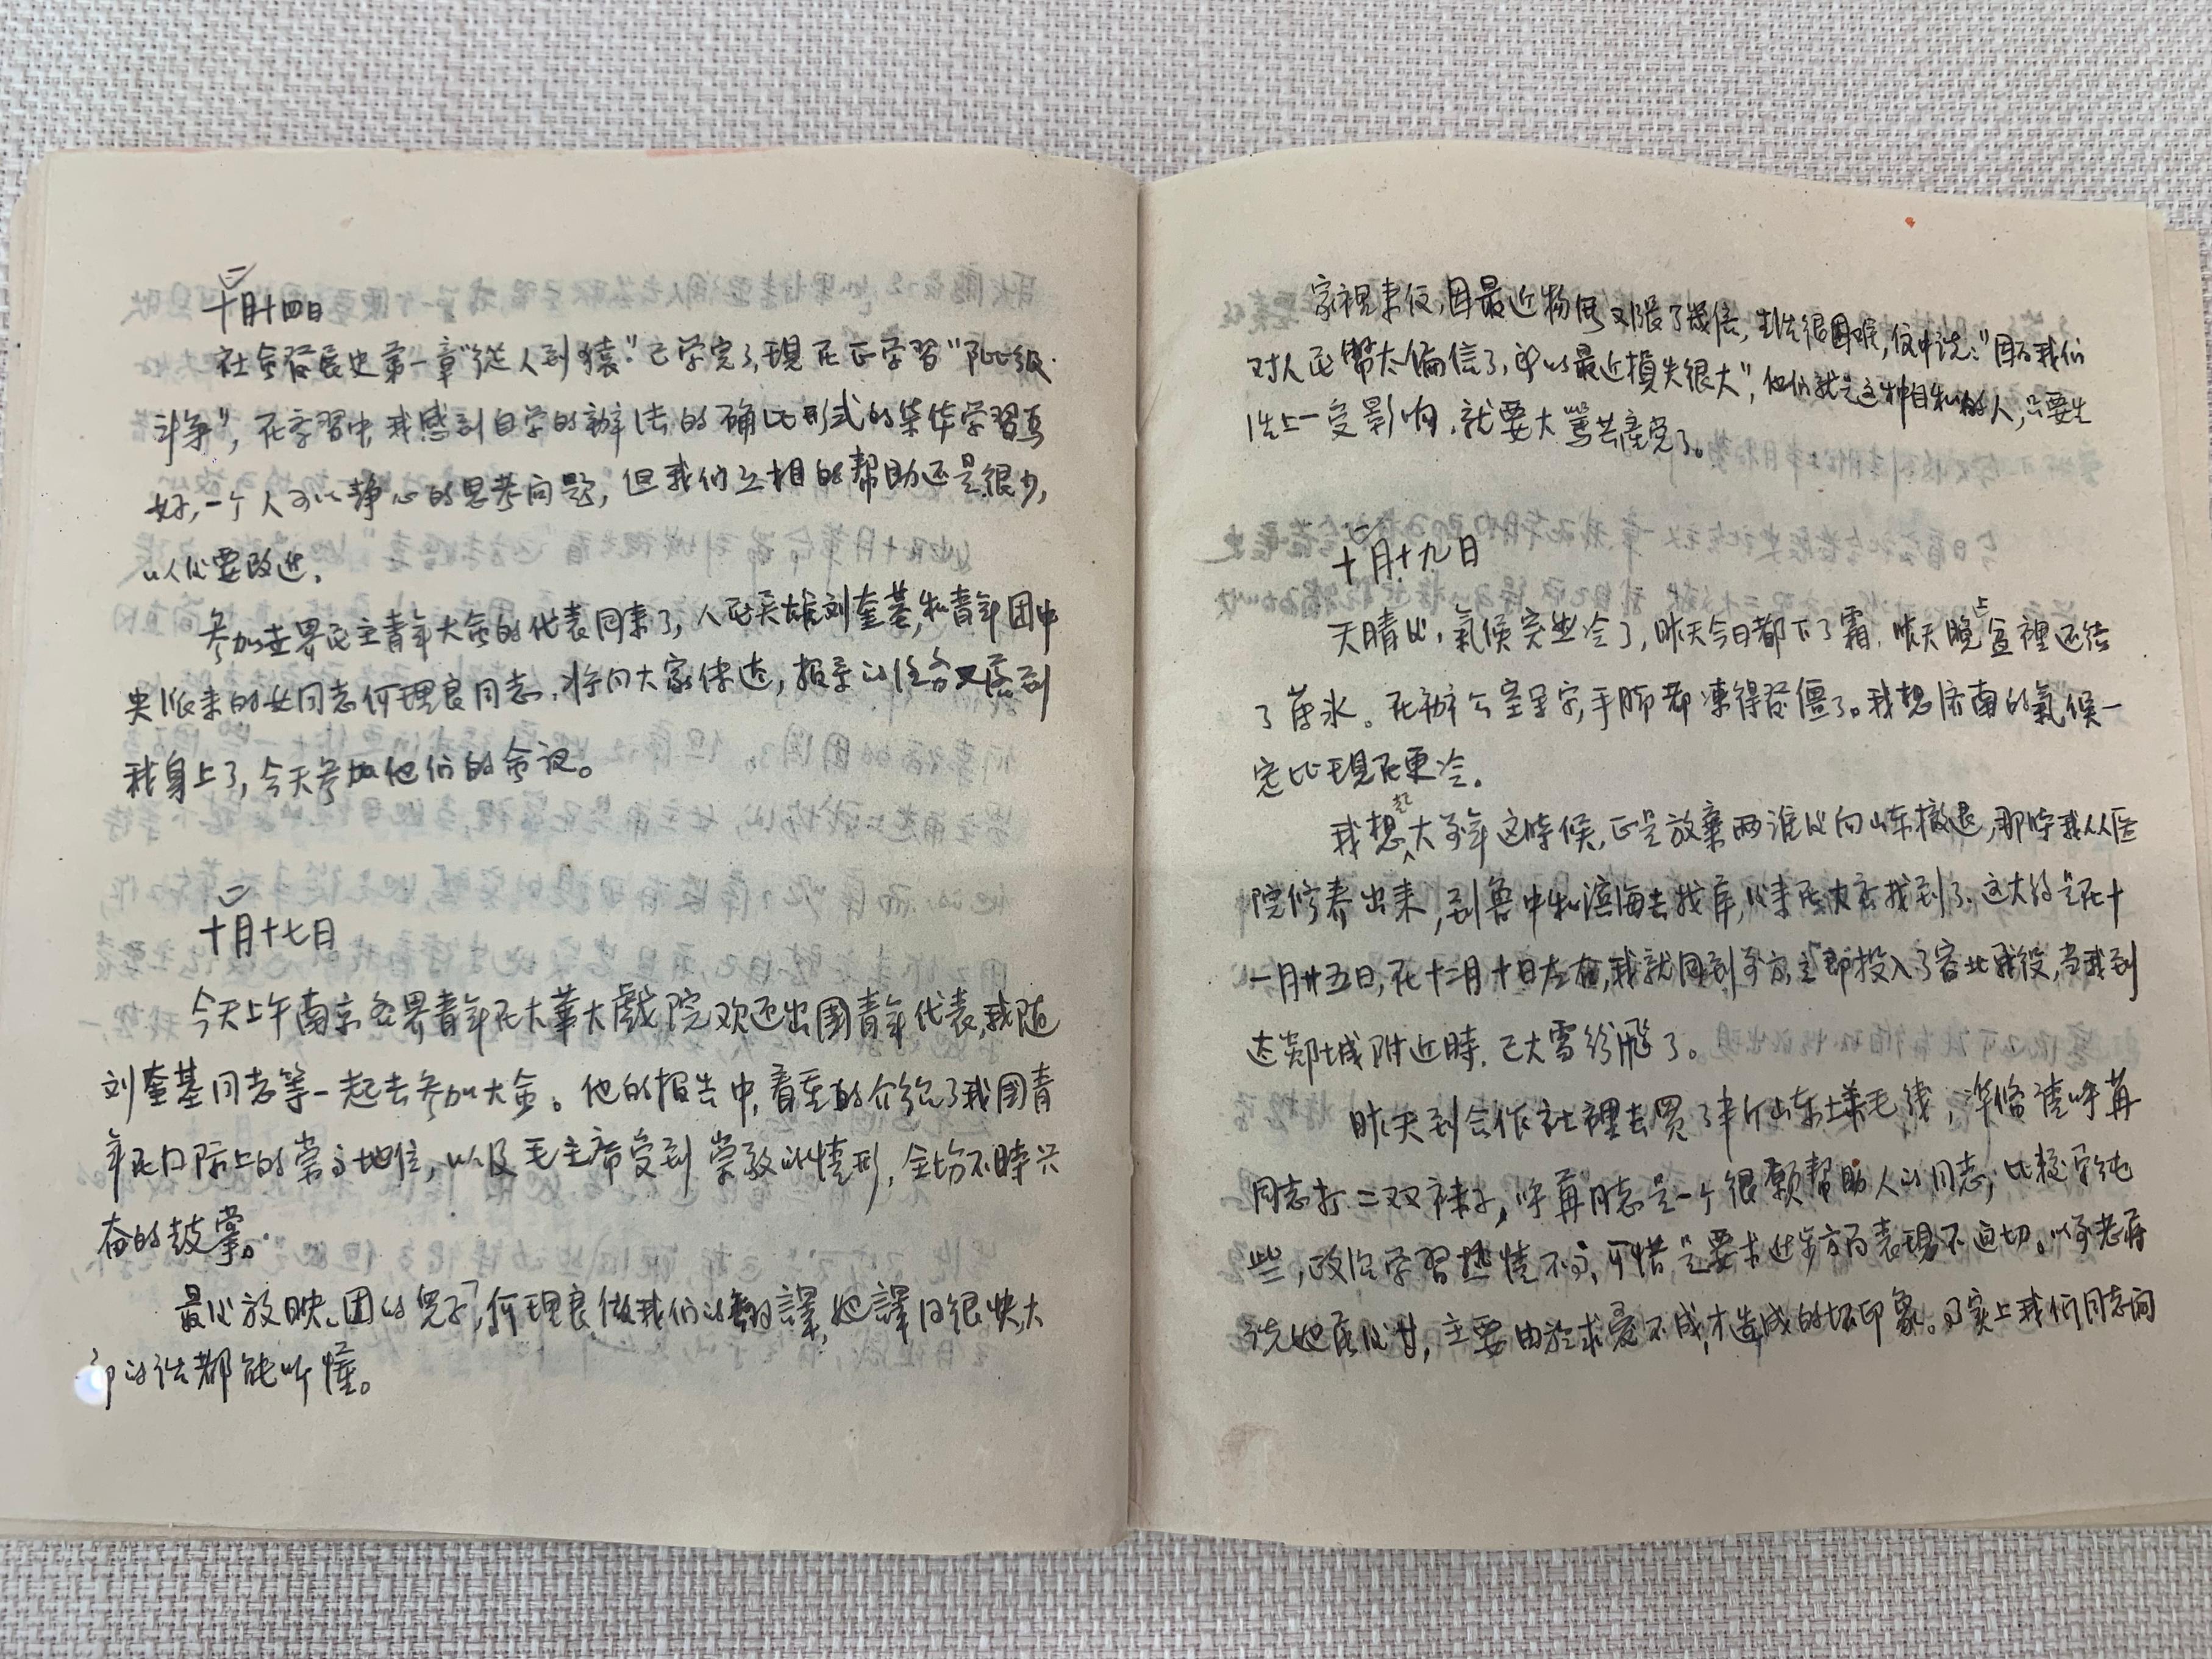 十一月十四日
社会發展史第一章“從人到猿”已学完了,現在正学習“阶级
斗争”,在学習中,我感到自学的辦法的确比形式的集体学習要
好,一个人可以静心的思考问题,但我们互相的帮助还是很少,
以後要改进.
参加世界民主青年大会的代表回来了,人民英雄刘奎基,和青年团中
央派来的女同志何理良同志,将向大家传达,报导的任务又落到
我身上了,今天参加他们的会议。
十一月十七日
今天上午南京各界青年在大華大戲院欢迎出國青年代表,我随
刘奎基同志等一起去参加大会。他的报告中,着重的介绍了我國青
年在口际上的崇高地位,以及毛主席受到崇敬的情形,全场不時兴
奋的鼓掌。
最後放映“团的兒子”,何理良做我们的翻譯,她譯得很快,大
部的话都能听懂。
家裡来信,因最近物價又漲了幾倍,生活很困难,信中说:“因为我们
对人民幣太偏信了,所以最近損失很大”,他们就是这种自私的人,只要生
活上一受影响,就要大罵共產党了。
十一月十九日
天晴後,氣候突然冷了,昨天今日都下了霜,昨天晚上盆裡还结
了薄冰。在辦公室里写字,手脚都凍得發僵了。我想济南的氣候一
定比現在更冷。
我想起大前年这時候,正是放棄两淮後向山东撤退,那時我从医
院修养出来,到魯中和滨海去找部隊,後来在大店找到了.这大约是在十
一月廿五日,在十二月十日左右,我就回到前方,立即投入了宿北战役,当我到
达郯城附近時,已大雪纷飛了。
昨天到合作社裡去買了半斤山东土羊毛线,準備请呼苒
同志打二双袜子,呼苒同志是一个很願帮助人的同志,比較单纯
些,政治学習热情不高,可惜是要求进步方面表現不迫切。以前老蒋
说她落後,主要由於求爱不成,才造成的坏印象。事实上我们同志间